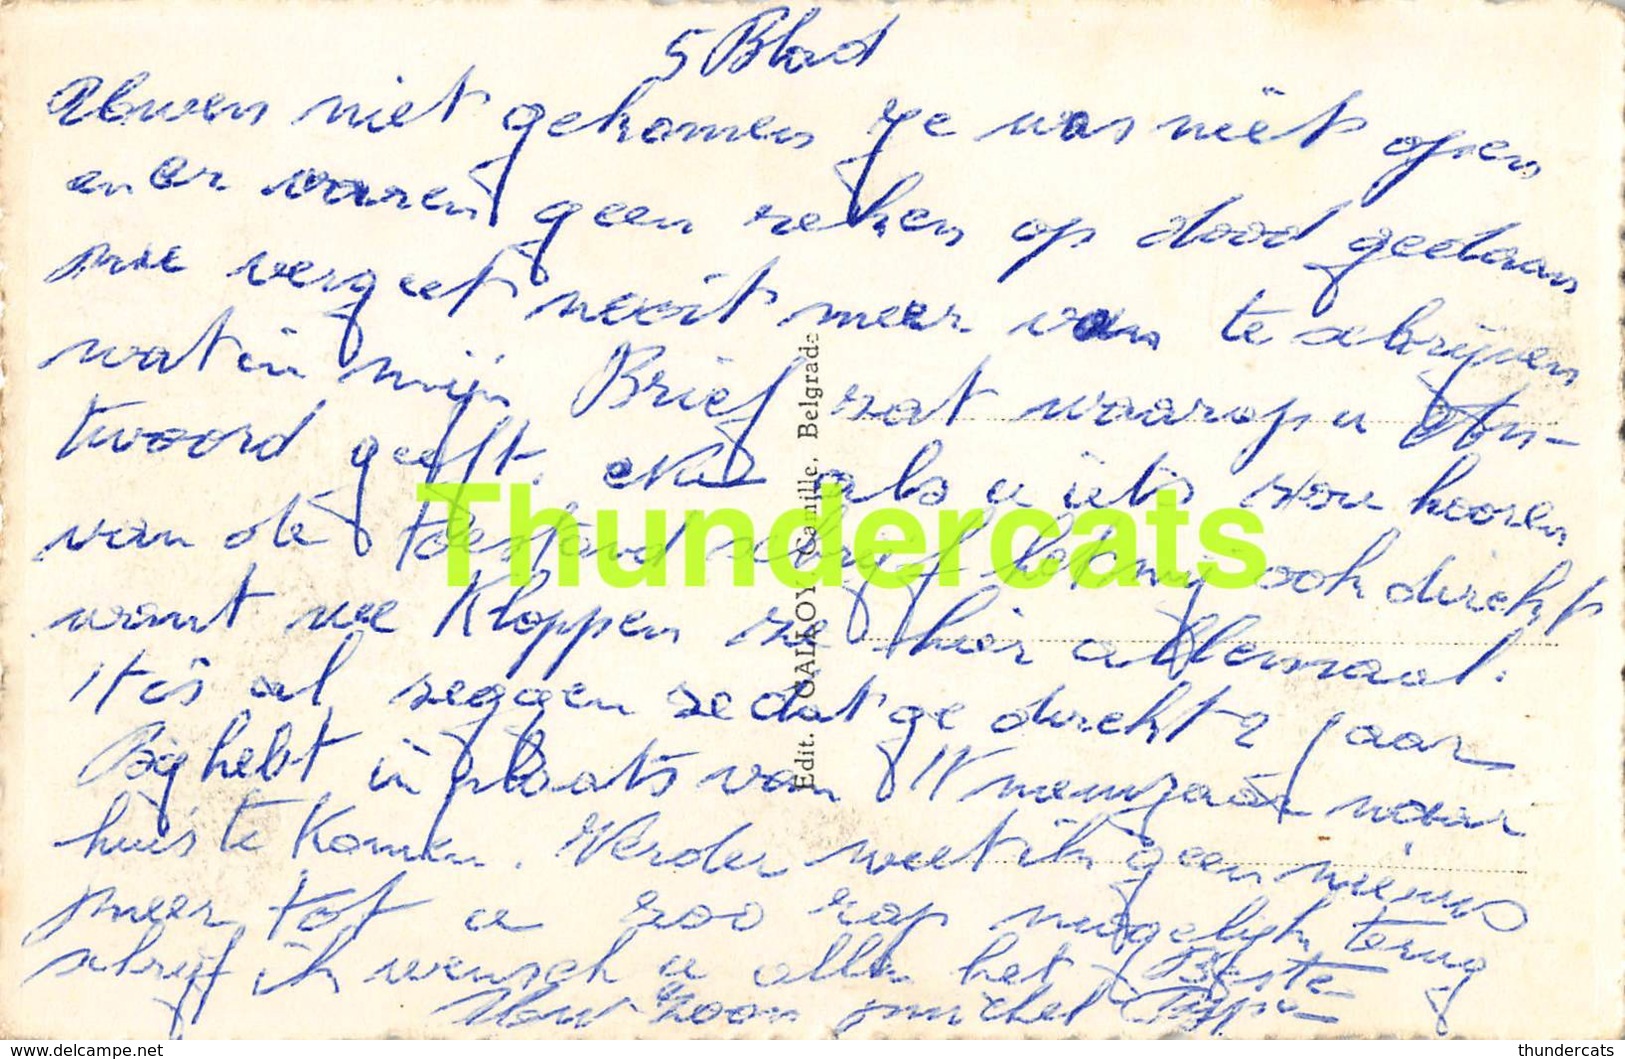 5 Blad
niet gekomen ze was niet open
en er waren geen reken op dood gedaan
me vergeet nooit meer van te schrijven
wat in mijn Brief zat waarop u Ant-
twoord geeft. als u iets zou hooren
van de toestand schrijf het my ook direckt
want we kloppen ze hier allemaal.
't is al zeggen ze dat ge direckt 2 jaar
By hebt in plaats van naar
huis te komen. Verder weet ik geen nieuws
meer tot u zoo rap mogelijk terug
schrijf ik wensch u alle het Beste
Uw zoon michel
Edit. GALLOY, Camille, Belgrade
Thundercats
delcampe.net
thundercats